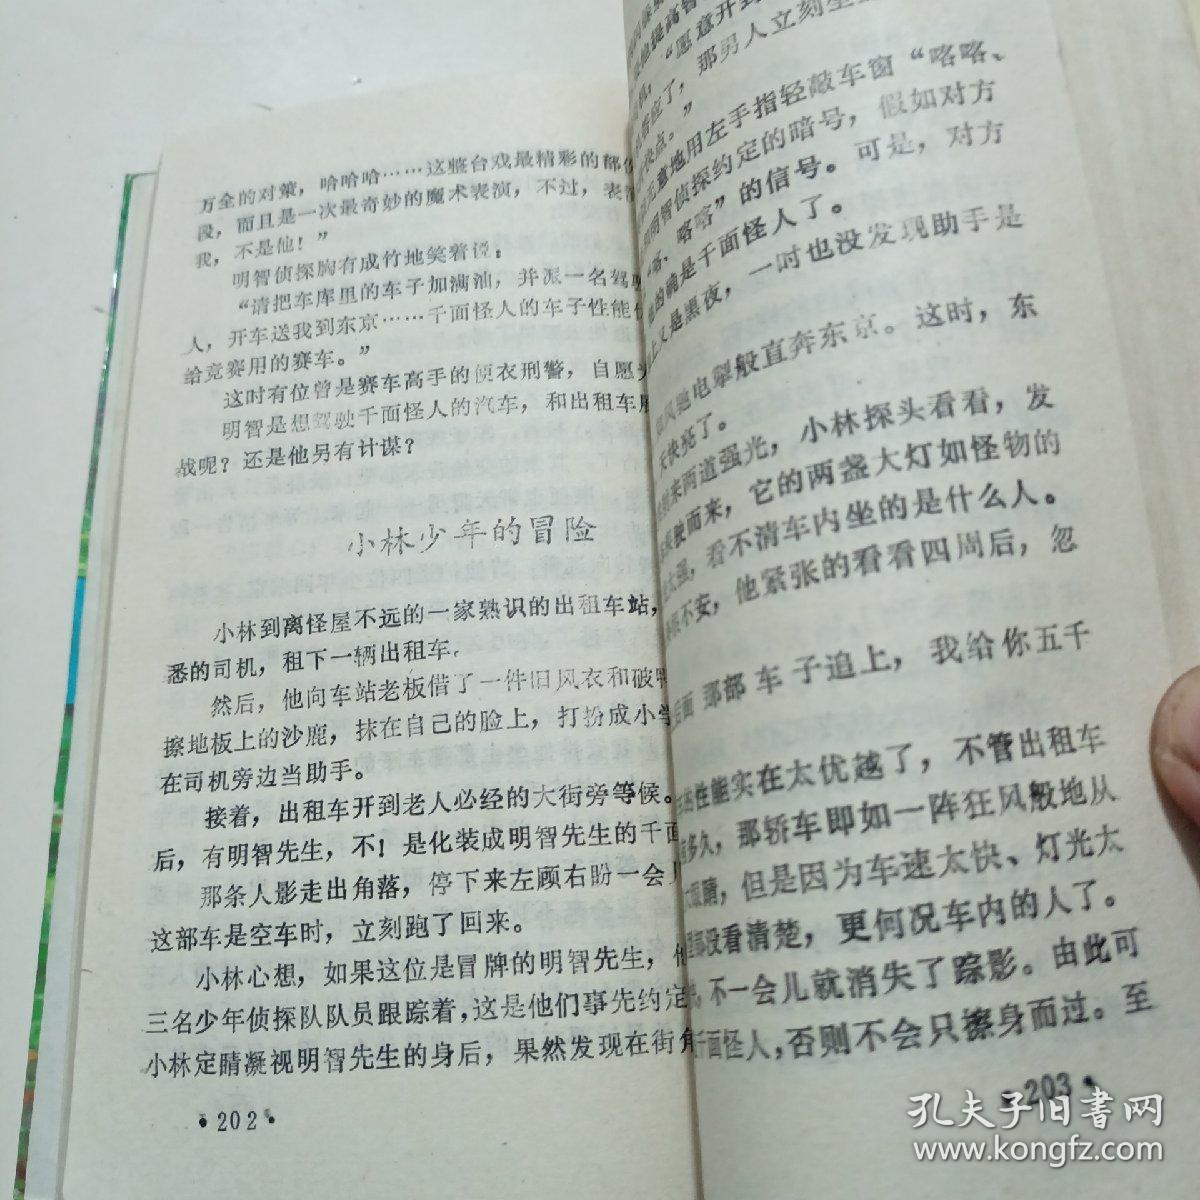 万全的对策，哈哈哈……这整台戏最精彩的部
段，而且是一次最奇妙的魔术表演，不过，表
我，不是他！”
明智侦探胸有成竹地笑着说：
“请把车库里的车子加满油，并派一名驾
人，开车送我到东京……千面怪人的车子性能
给竞赛用的赛车。”
这时有位曾是赛车高手的便衣刑警，自愿
明智是想驾驶千面怪人的汽车，和出租车
战呢？还是他另有计谋？
小林少年的冒险
小林到离怪屋不远的一家熟识的出租车站，
悉的司机，租下一辆出租车。
然后，他向车站老板借了一件旧风衣和破
擦地板上的沙鹿，抹在自己的脸上，打扮成小
在司机旁边当助手。
接着，出租车开到老人必经的大街旁等候。
后，有明智先生，不！是化装成明智先生的千面
那条人影走出角落，停下来左顾右盼一会
这部车是空车时，立刻跑了回来。
小林心想，如果这位是冒牌的明智先生，
三名少年侦探队队员跟踪着，这是他们事先约定
小林定睛凝视明智先生的身后，果然发现在街角
•202•
他提高智
“愿意开到
答应了，那男人立刻坐
快点。”
无意地用左手指轻敲车窗“咯咯、
明智侦探约定的暗号，假如对方
“咯、咯咯”的信号。可是，对方
的确是千面怪人了。
上又是黑夜，一时也没发现助手是
风驰电掣般直奔东京。这时，东
天快亮了。
来两道强光，小林探头看看，发
驶而来，它的两盏大灯如怪物的
太强，看不清车内坐的是什么人。
不安，他紧张的看看四周后，忽
后面那部车子追上，我给你五千
性能实在太优越了，不管出租车
多久，那轿车即如一阵狂风般地从
眼睛，但是因为车速太快、灯光太
都没看清楚，更何况车内的人了。
，不一会儿就消失了踪影。由此可
千面怪人，否则不会只擦身而过。至
•203•
孔夫子旧书网
www.kongfz.com